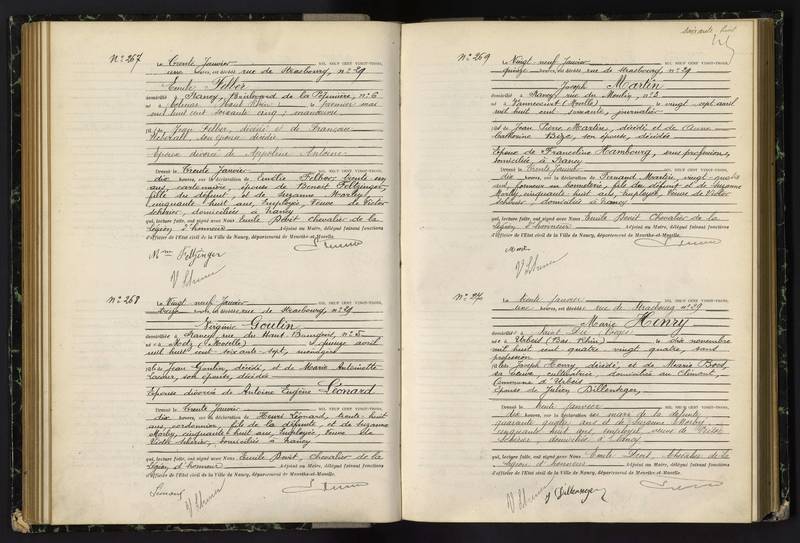 N° 267
Le Trente Janvier MIL NEUF CENT VINGT-TROIS,
une heure, est décédé rue de Strasbourg, n° 29
Emile Felber
domicilié à Nancy, Boulevard de la Pépinière, n° 6
né à Colmar (Haut Rhin) le premier mai
mil huit cent soixante cinq; manœuvre
fils de Jean Felber, décédé et de Françoise
son épouse décédée
Epoux divorcé de Appoline Antoine
Dressé le Trente Janvier MIL NEUF CENT VINGT-TROIS,
dix heures, sur la déclaration de Emélie Felber, trente six
ans, cartonnière, épouse de Benoit Feltzinger,
fille du défunt, et de Suzanne Marley,
cinquante huit ans, Employée, Veuve de Victor
Scherier, domiciliées à Nancy
qui, lecture faite, ont signé avec Nous Emile Boit Chevalier de la
Légion d'honneur Adjoint au Maire, délégué faisant fonctions
d'officier de l'Etat civil de la Ville de Nancy, département de Meurthe-et-Moselle.
Mme Feltzinger
N° 268
Le Vingt neuf Janvier MIL NEUF CENT VINGT-TROIS,
treize heures, est décédée rue de Strasbourg, n° 29
Virginie Goulin
domiciliée à Nancy, rue du Haut Bourgeois, n° 5
née à Metz (Moselle) le quinze avril
mil huit cent soixante sept, ménagère
fille de Jean Goulin, décédé, et de Marie Antoinette
son épouse, décédée
Epouse divorcée de Antoine Eugène Léonard
Dressé le Trente Janvier MIL NEUF CENT VINGT-TROIS,
dix heures, sur la déclaration de Henri Léonard, trente huit
ans, cordonnier, fils de la défunte, et de Suzanne
Marley, cinquante huit ans, Employée, Veuve de
Victor Scherier, domiciliés à Nancy
qui, lecture faite, ont signé avec Nous Emile Boit, Chevalier de la
Légion d'honneur Adjoint au Maire, délégué faisant fonctions
d'officier de l'Etat civil de la Ville de Nancy, département de Meurthe-et-Moselle.
soixante huit
N° 269
Le Vingt neuf Janvier MIL NEUF CENT VINGT-TROIS,
quinze heures, est décédé rue de Strasbourg, n° 29
Joseph Martin
domicilié à Nancy, rue du Moulin, n° 2
né à (Moselle) le vingt sept avril
mil huit cent soixante, journalier
fils de Jean Pierre Martin, décédé et de Anne
Catherine son épouse, décédée
Epoux de Francoline Hambourg, sans profession,
domiciliée à Nancy
Dressé le Trente Janvier MIL NEUF CENT VINGT-TROIS,
dix heures, sur la déclaration de Fernand Martin, vingt quatre
ans, fils du défunt et de Suzanne
Marley, cinquante huit ans, employée, Veuve de Victor
Scherier, domiciliés à Nancy
qui, lecture faite, ont signé avec Nous Emile Boit Chevalier de la
Légion d'honneur Adjoint au Maire, délégué faisant fonctions
d'officier de l'Etat civil de la Ville de Nancy, département de Meurthe-et-Moselle.
N° 27
Le trente Janvier MIL NEUF CENT VINGT-TROIS,
une heure, est décédée rue de Strasbourg n° 29
Marie Henry
domiciliée à Saint Dié (Vosges)
née à Urbeis (Bas Rhin) le dix novembre
mil huit cent quatre vingt quatre, sans
profession
fille de Joseph Henry décédé, et de Marie
sa veuve, cultivatrice, domiciliée au Climont,
Commune d'Urbeis
Epouse de Julien Dillenseger,
Dressé le trente janvier MIL NEUF CENT VINGT-TROIS,
dix heures, sur la déclaration de mari de la défunte,
quarante quatre ans et de Suzanne Marley,
cinquante huit ans, employée, veuve de Victor
Scherier, domiciliée à Nancy
qui, lecture faite, ont signé avec Nous Emile Boit, Chevalier de la
Légion d'honneur Adjoint au Maire, délégué faisant fonctions
d'officier de l'Etat civil de la Ville de Nancy, département de Meurthe-et-Moselle.
J Dillenseger